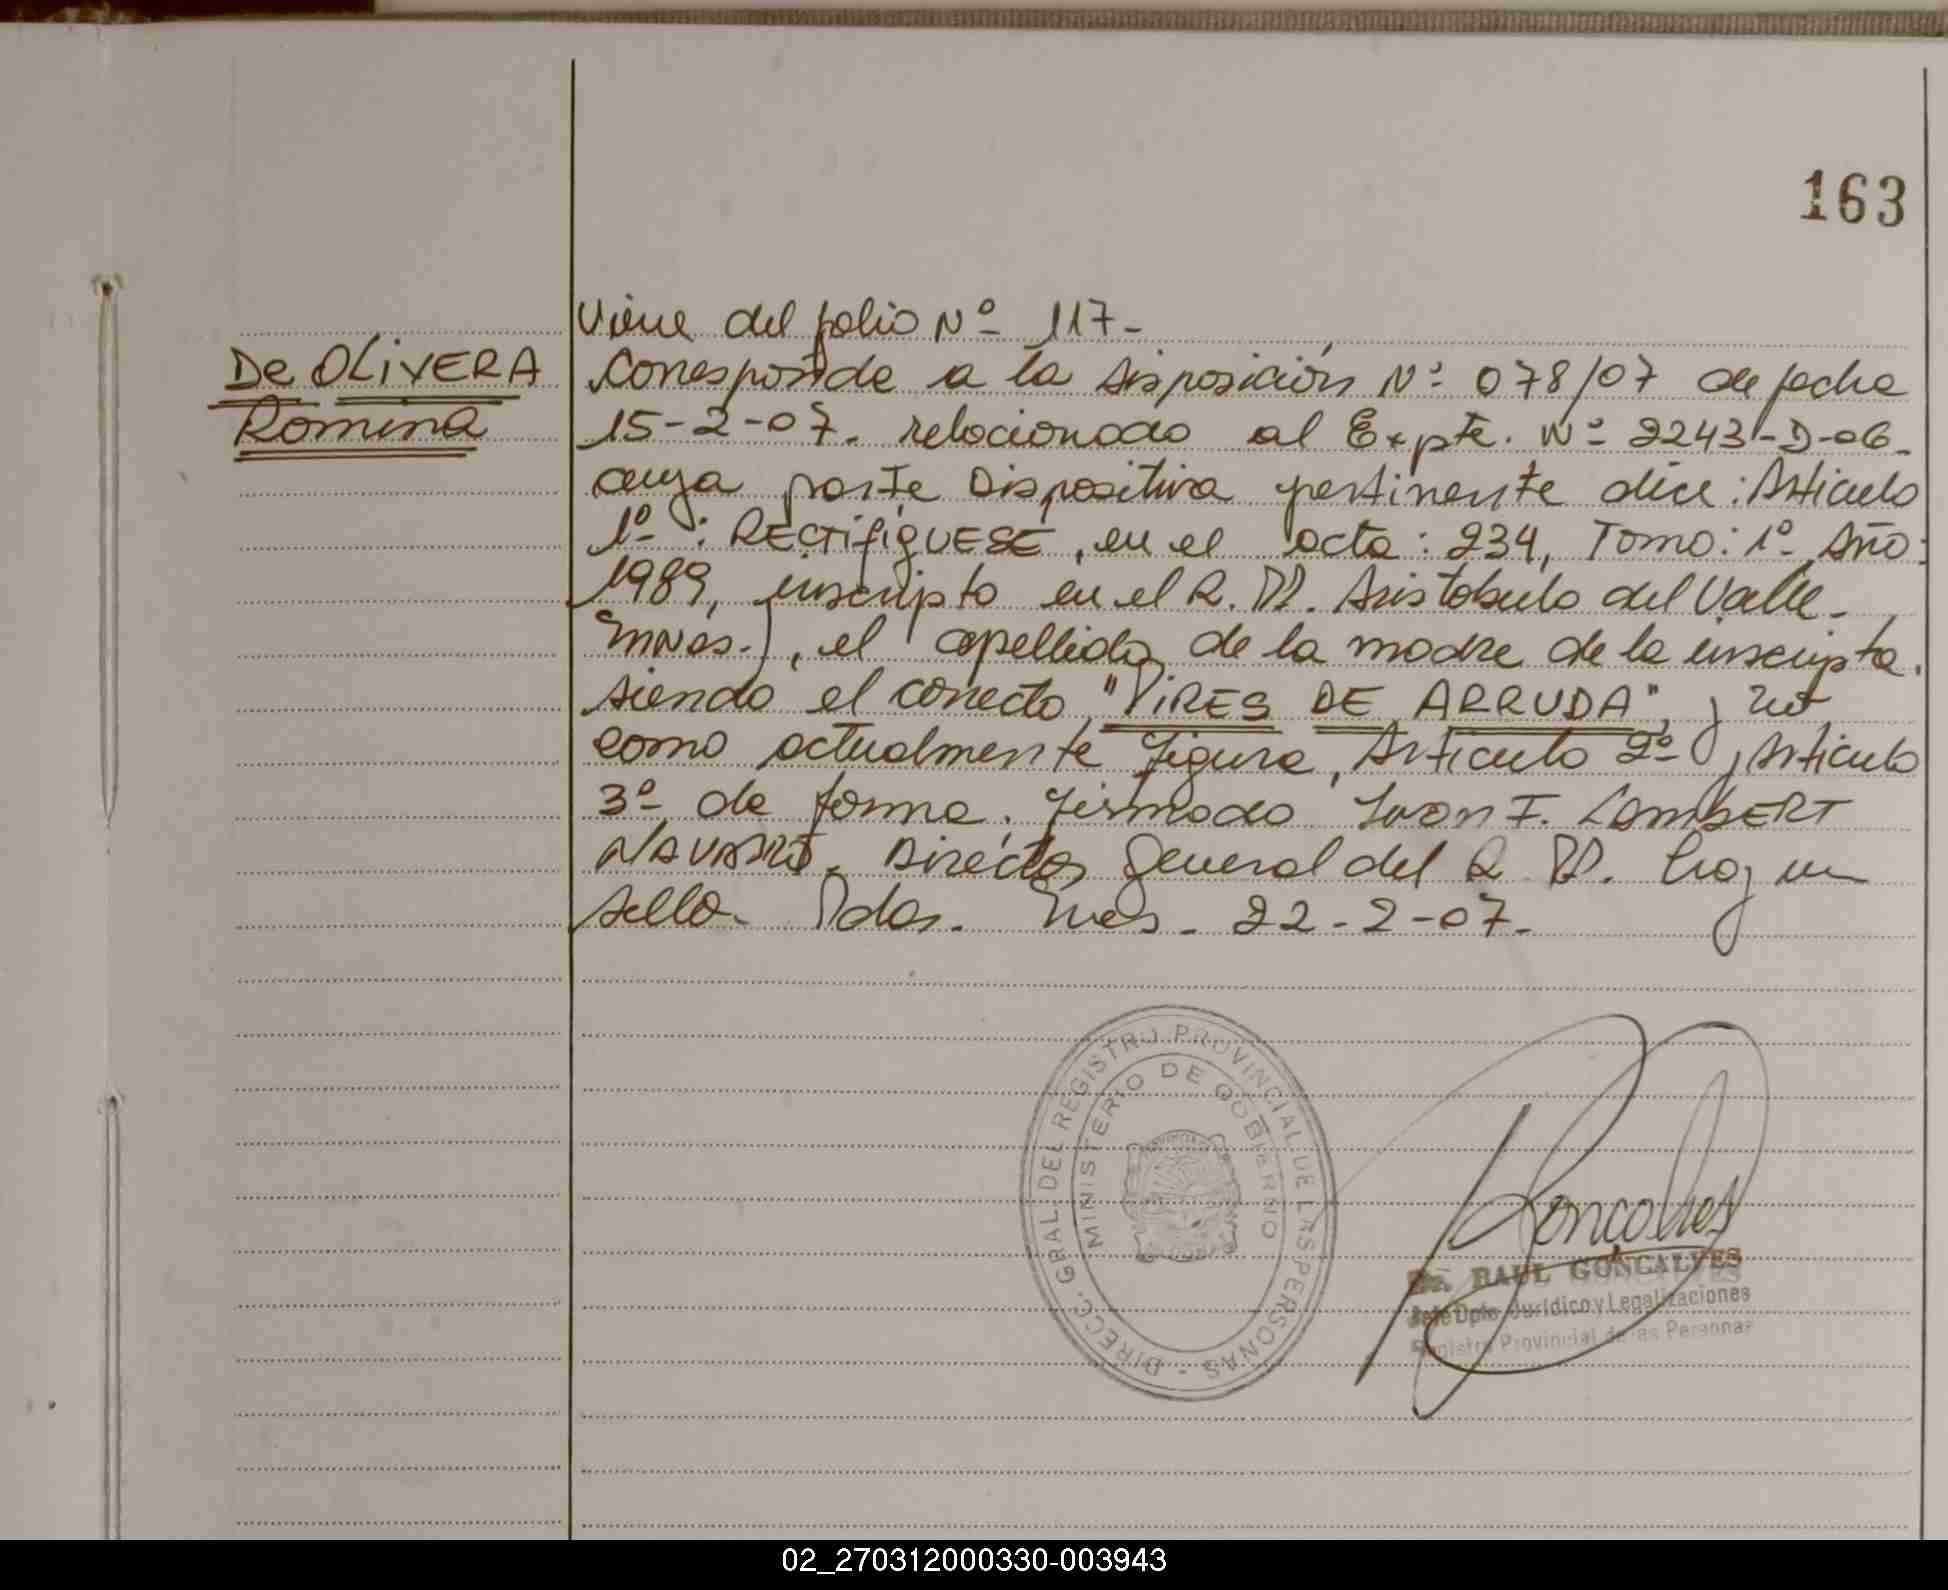 163
Viene del folio Nº 117-
De OLIVERA
Romina
Corresponde a la Disposición Nº 078/07 de fecha
15-2-07. relacionado al Expte. Nº 2243-D-06-
cuya parte Dispositiva pertinente dice: Articulo
1º: RECTIFIQUESE, en el acta: 234, Tomo: 1º Año:
1989, inscripto en el R. PP. Aristobulo del Valle-
Mnes.), el apellido de la madre de la inscripta.
siendo el correcto "PIRES DE ARRUDA", y no
como actualmente figura, Articulo 2º y Articulo
3º de forma. Firmado Ivan F. LAMBERT
NAVARRO. Director General del R. PP. Hay un
sello- Pdas. Mnes. 22-2-07.
DIRECC. GRAL. DEL REGISTRO PROVINCIAL DE LAS PERSONAS -
MINISTERIO DE GOBIERNO
Goncalves
Dr. RAUL GONCALVES
Jefe Dpto. Jurídico y Legalizaciones
Registro Provincial de las Personas
02_270312000330-003943